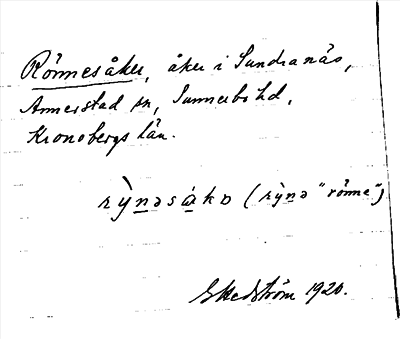 Rönnesåker, åker i Sundranäs,
Annerstad sn, Sunnerbo hd,
Kronobergs län.
rỳnəsåkɒ (rỳnə "rönne")
G Hedström 1920.